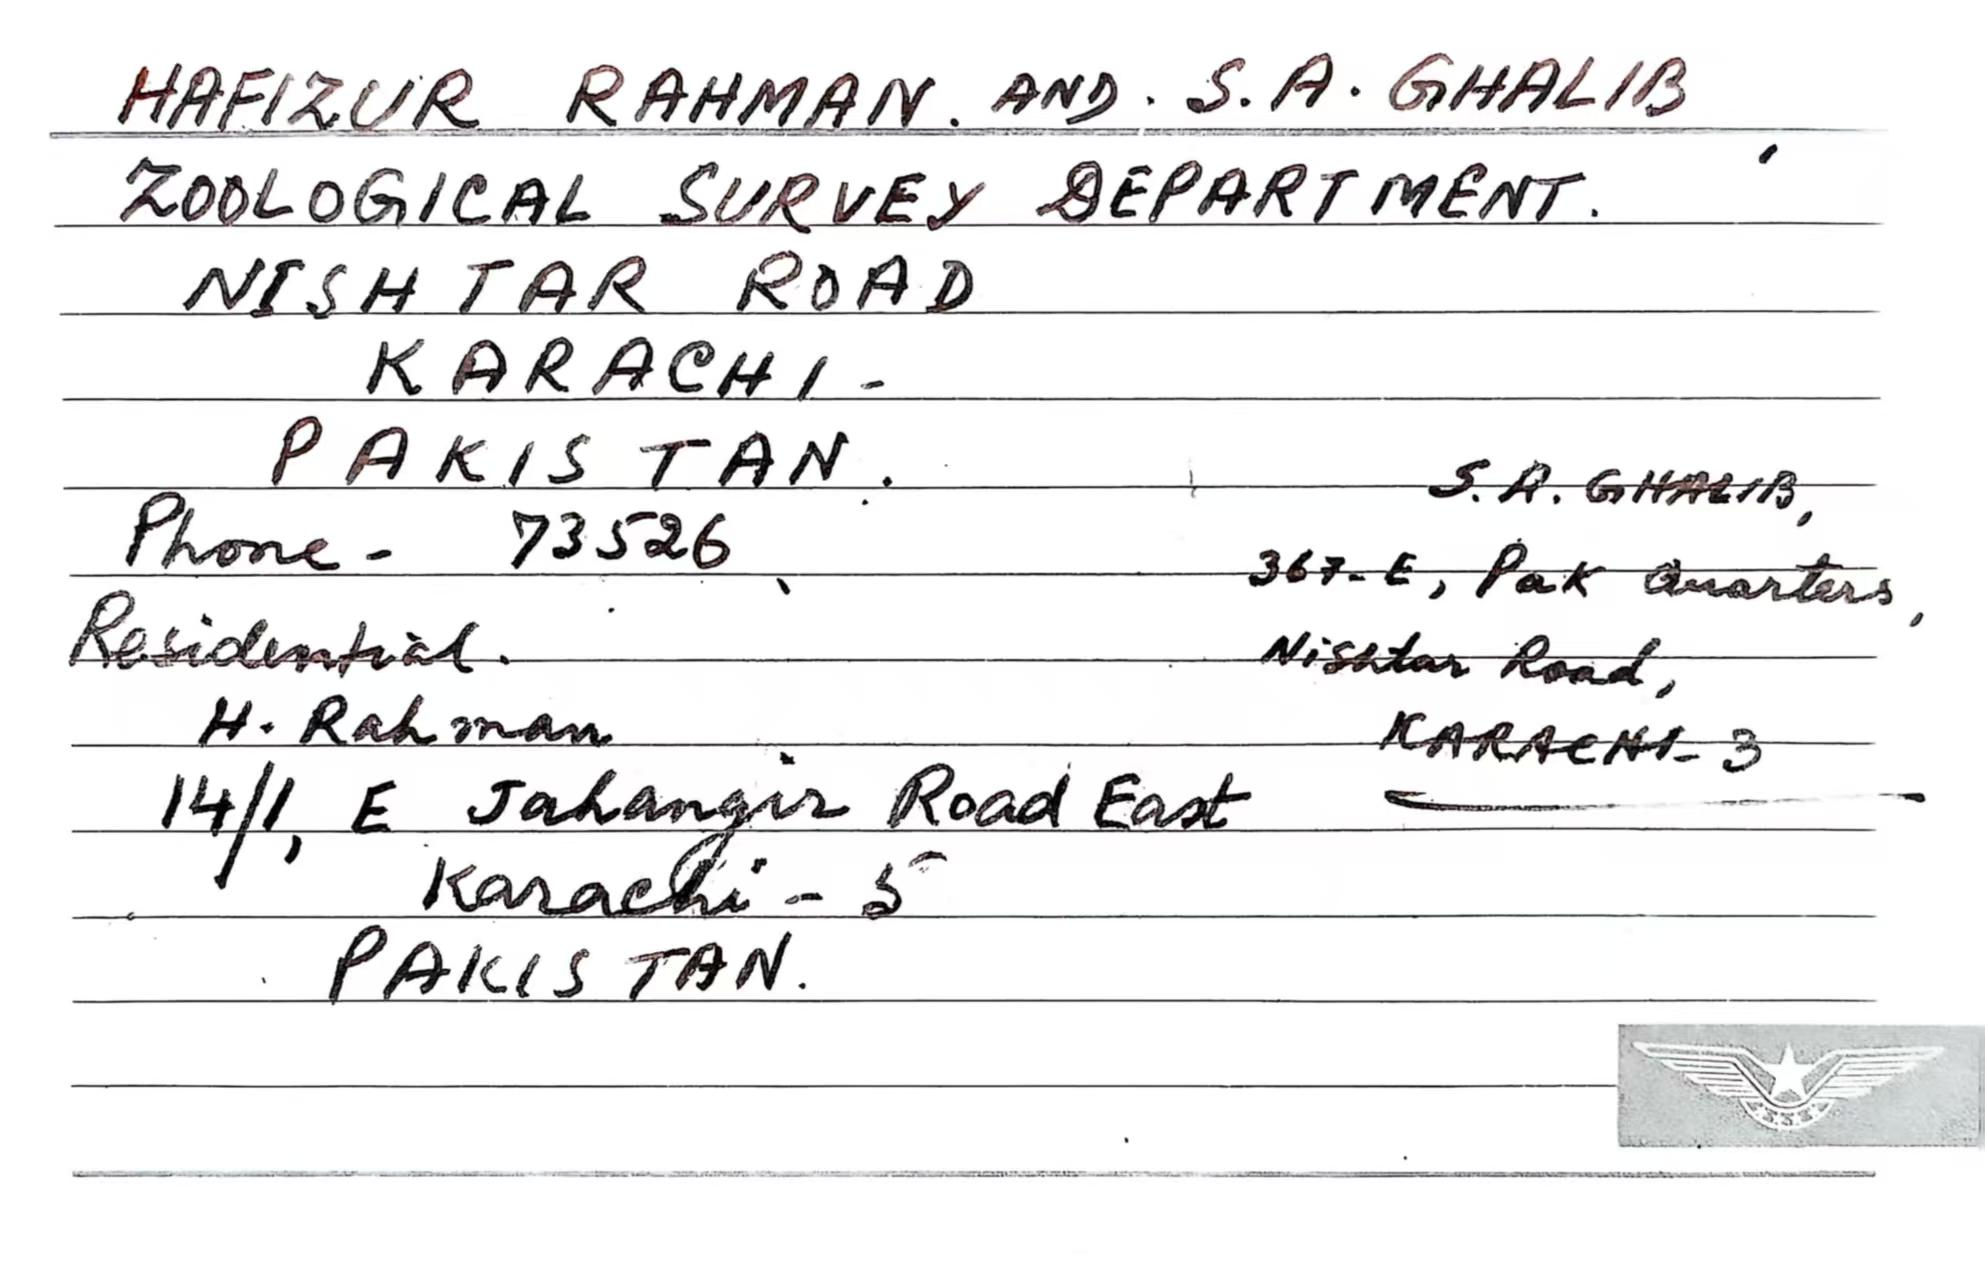 HAFIZUR RAHMAN. AND. S. A. GHALIB
ZOOLOGICAL SURVEY DEPARTMENT.
NISHTAR ROAD
KARACHI -
PAKISTAN.
Phone - 73526
Residential.
H. Rahman
14/1, E Jahangir Road East
Karachi - 5
PAKISTAN.
S. A. GHALIB,
367-E, Pak Quarters,
Nishtar Road,
KARACHI-3